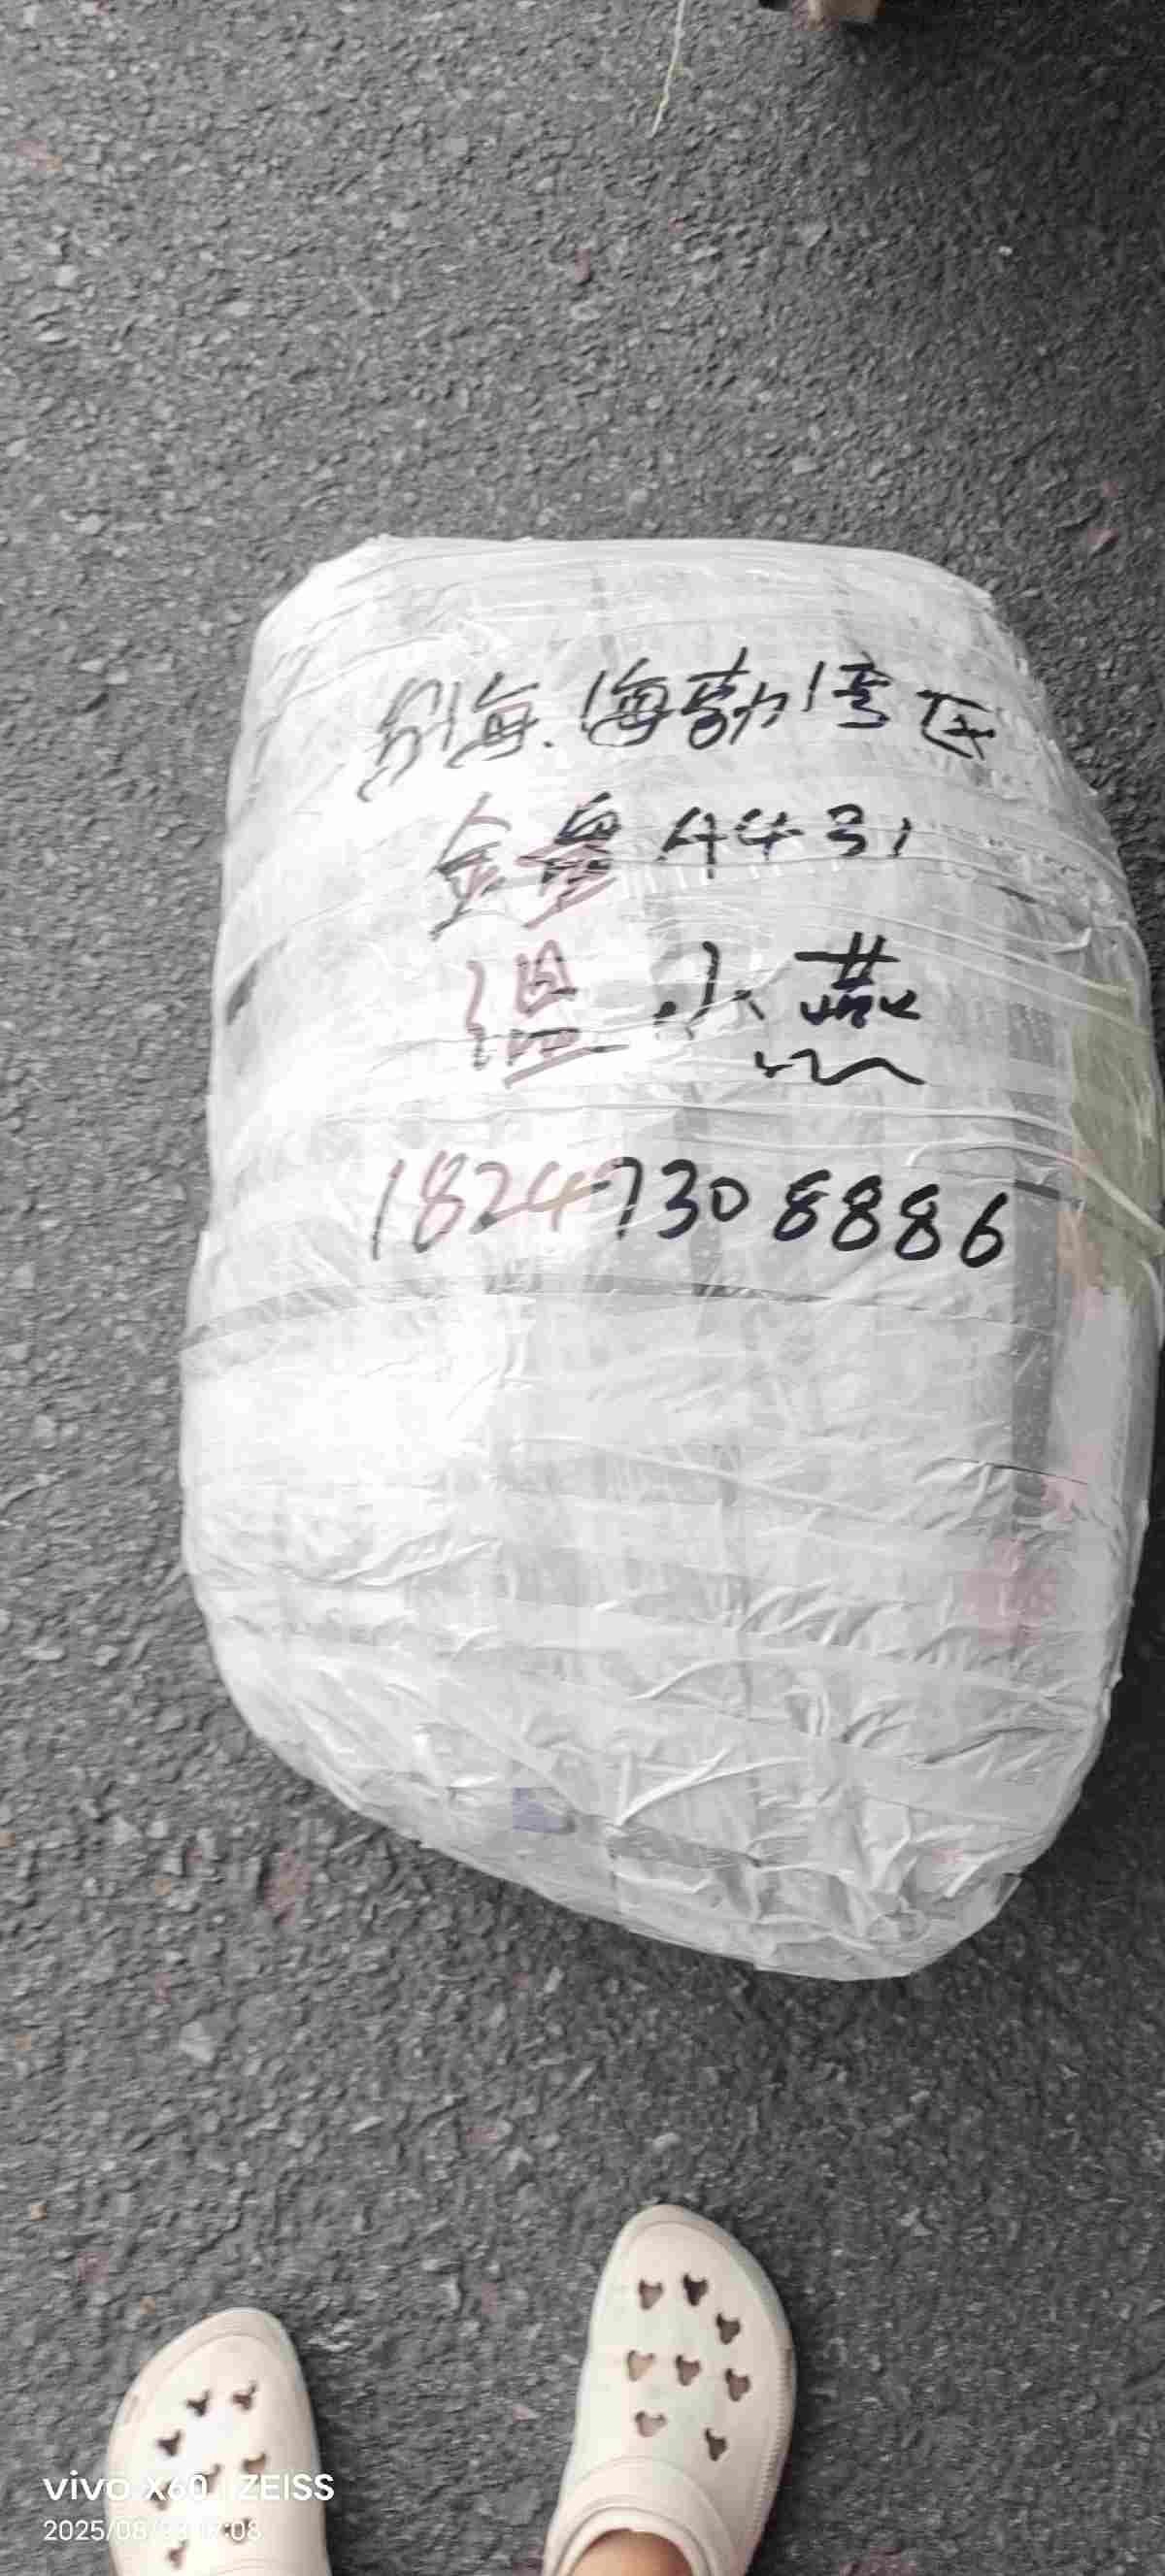 海.海勃湾区
金桌A4431
温小燕
18247308886
vivo X60 | ZEISS
2025/08/
:08